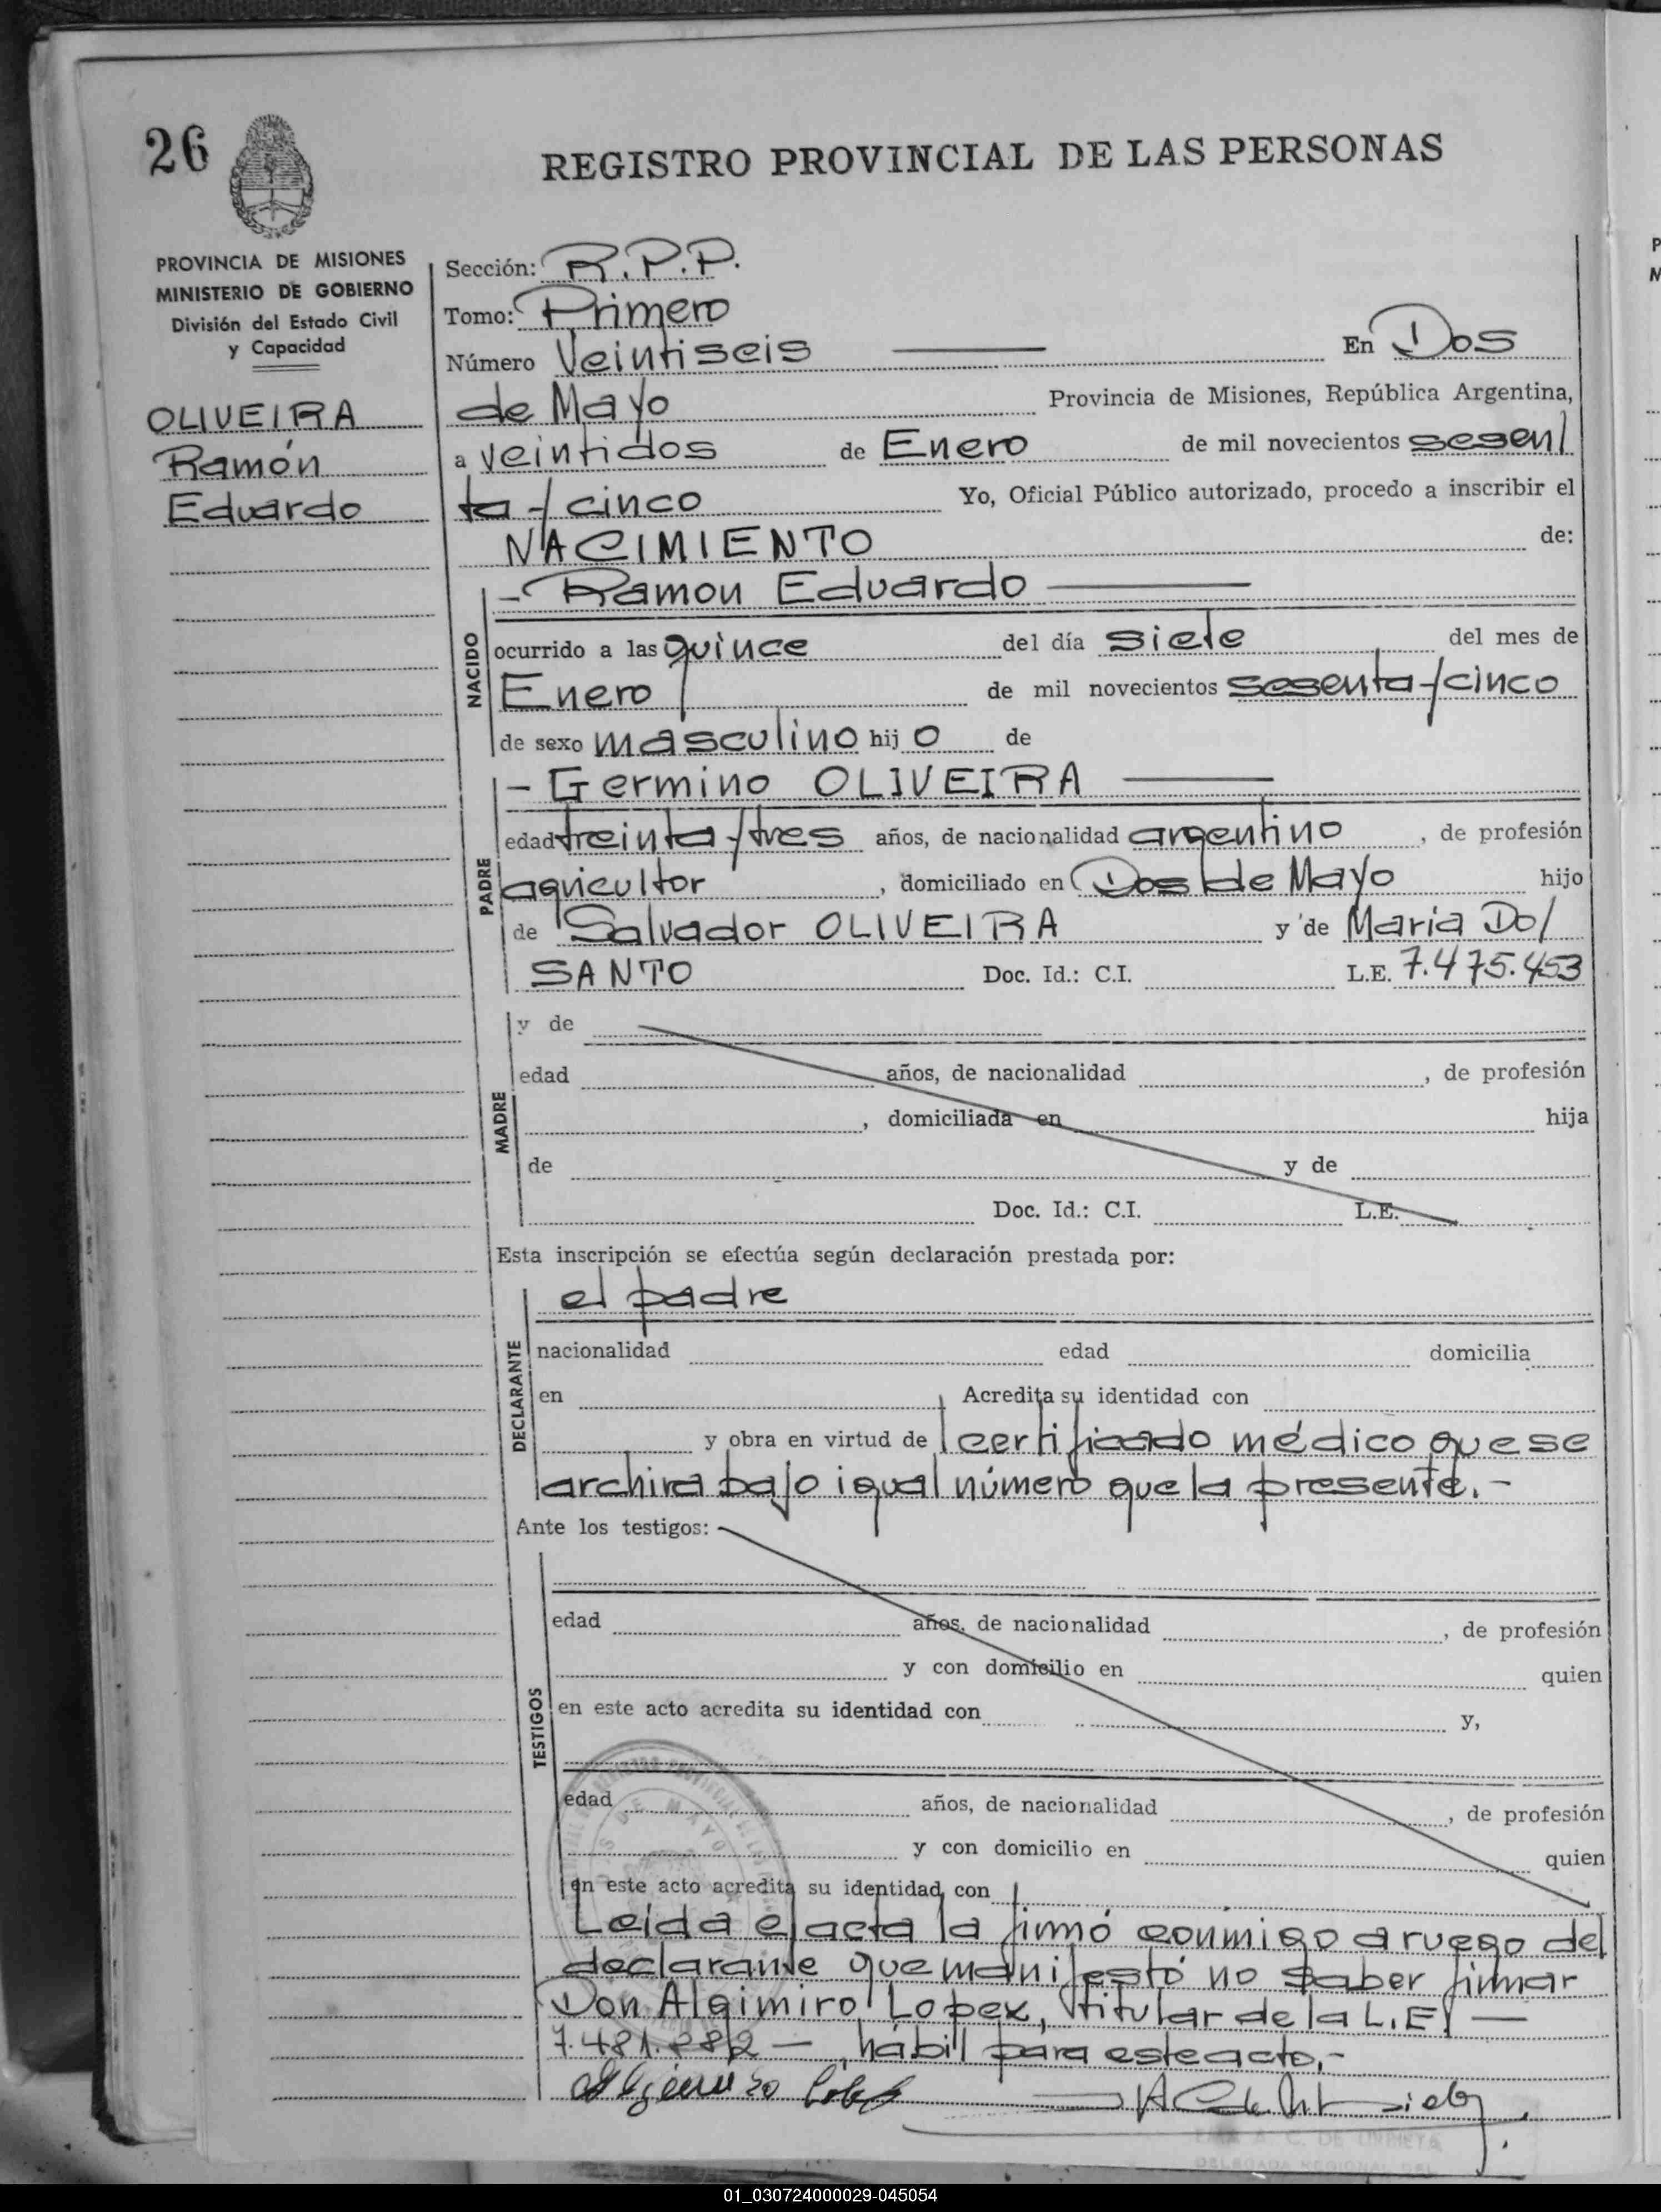 26
REGISTRO PROVINCIAL DE LAS PERSONAS
PROVINCIA DE MISIONES
MINISTERIO DE GOBIERNO
División del Estado Civil
y Capacidad
OLIVEIRA
Ramón
Eduardo
Sección: R.P.P.
Tomo: Primero
Número Veintiseis En Dos
de Mayo Provincia de Misiones, República Argentina,
a veintidos de Enero de mil novecientos sesen/
ta y cinco Yo, Oficial Público autorizado, procedo a inscribir el
NACIMIENTO de:
NACIDO
- Ramon Eduardo
ocurrido a las quince del día siete del mes de
Enero de mil novecientos sesenta y cinco
de sexo masculino hij o de
PADRE
- Germino OLIVEIRA
edad treinta y tres años, de nacionalidad argentino, de profesión
agricultor, domiciliado en Dos de Mayo hijo
de Salvador OLIVEIRA y de María Do/
SANTO Doc. Id.: C.I. L.E. 7.475.453
MADRE
y de
edad años, de nacionalidad , de profesión
, domiciliada en hija
de y de
Doc. Id.: C.I. L.E.
Esta inscripción se efectúa según declaración prestada por:
DECLARANTE
el padre
nacionalidad edad domicilia
en Acredita su identidad con
y obra en virtud de certificado médico que se
archiva bajo igual número que la presente.-
Ante los testigos:
TESTIGOS
edad años, de nacionalidad , de profesión
y con domicilio en quien
en este acto acredita su identidad con y,
edad años, de nacionalidad , de profesión
y con domicilio en quien
en este acto acredita su identidad con
Leida el acta la firmó conmigo a ruego del
declarante que manifestó no saber firmar
Don Algimiro Lopez, titular de la L.E. —
7.481.282 — hábil para este acto.-
DELEGADA REGIONAL DEL
01_030724000029-045054